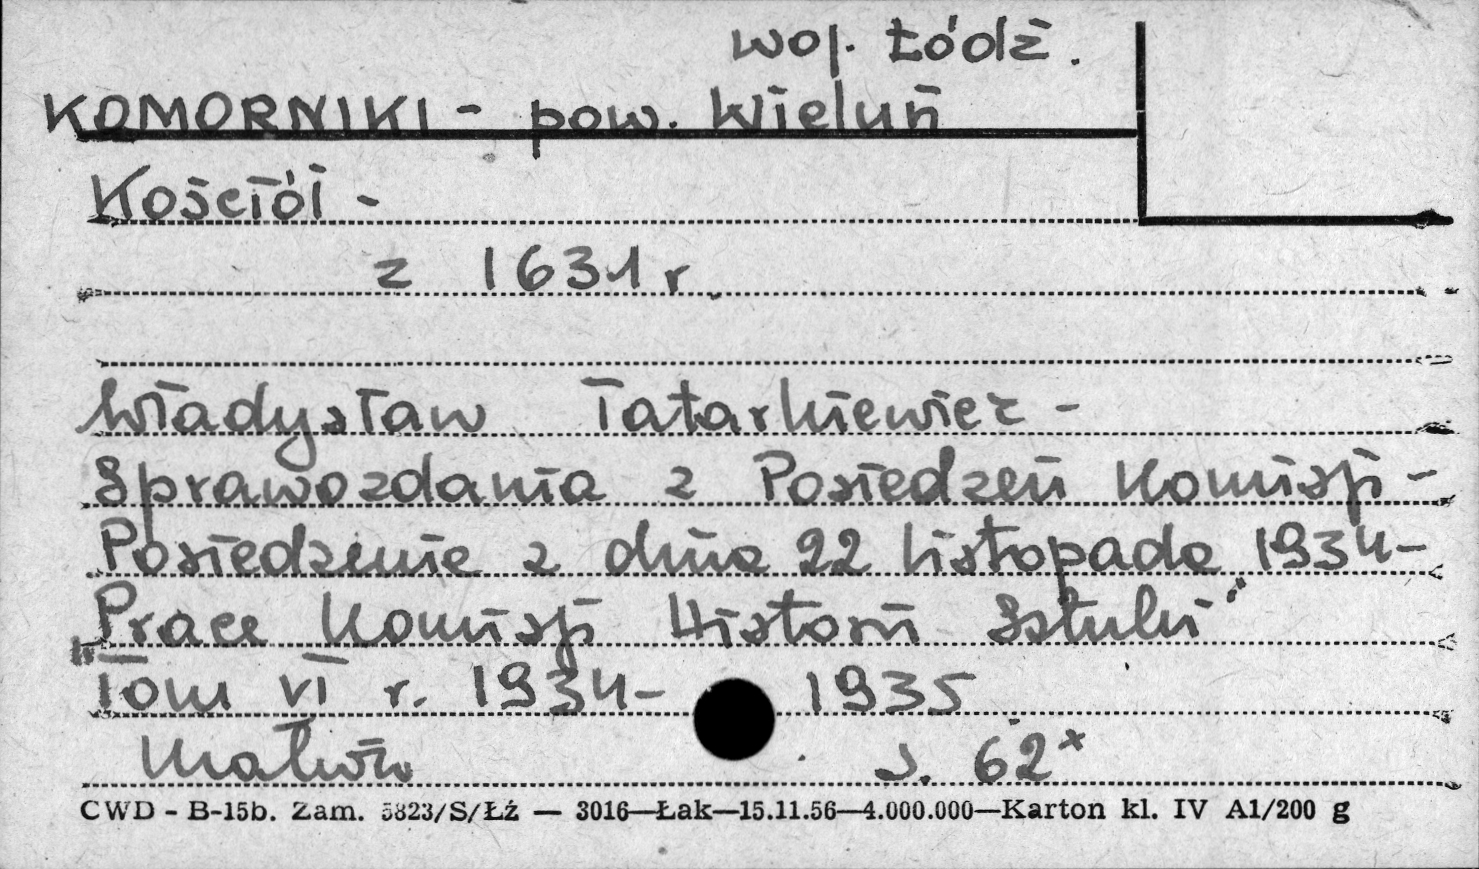 woj. Łódź.
KOMORNIKI - pow. Wieluń
Kościół -
z 1631 r.
Władysław Tatarkiewicz -
Sprawozdania z Posiedzeń Komisji -
Posiedzenie z dnia 22 listopada 1934-
Prace Komisji Historii Sztuki"
Tom VI r. 1934- 1935
Kraków s. 62x
CWD - B-15b. Zam. 5823/S/Łź — 3016—Łak—15.11.56—4.000.000—Karton kl. IV A1/200 g